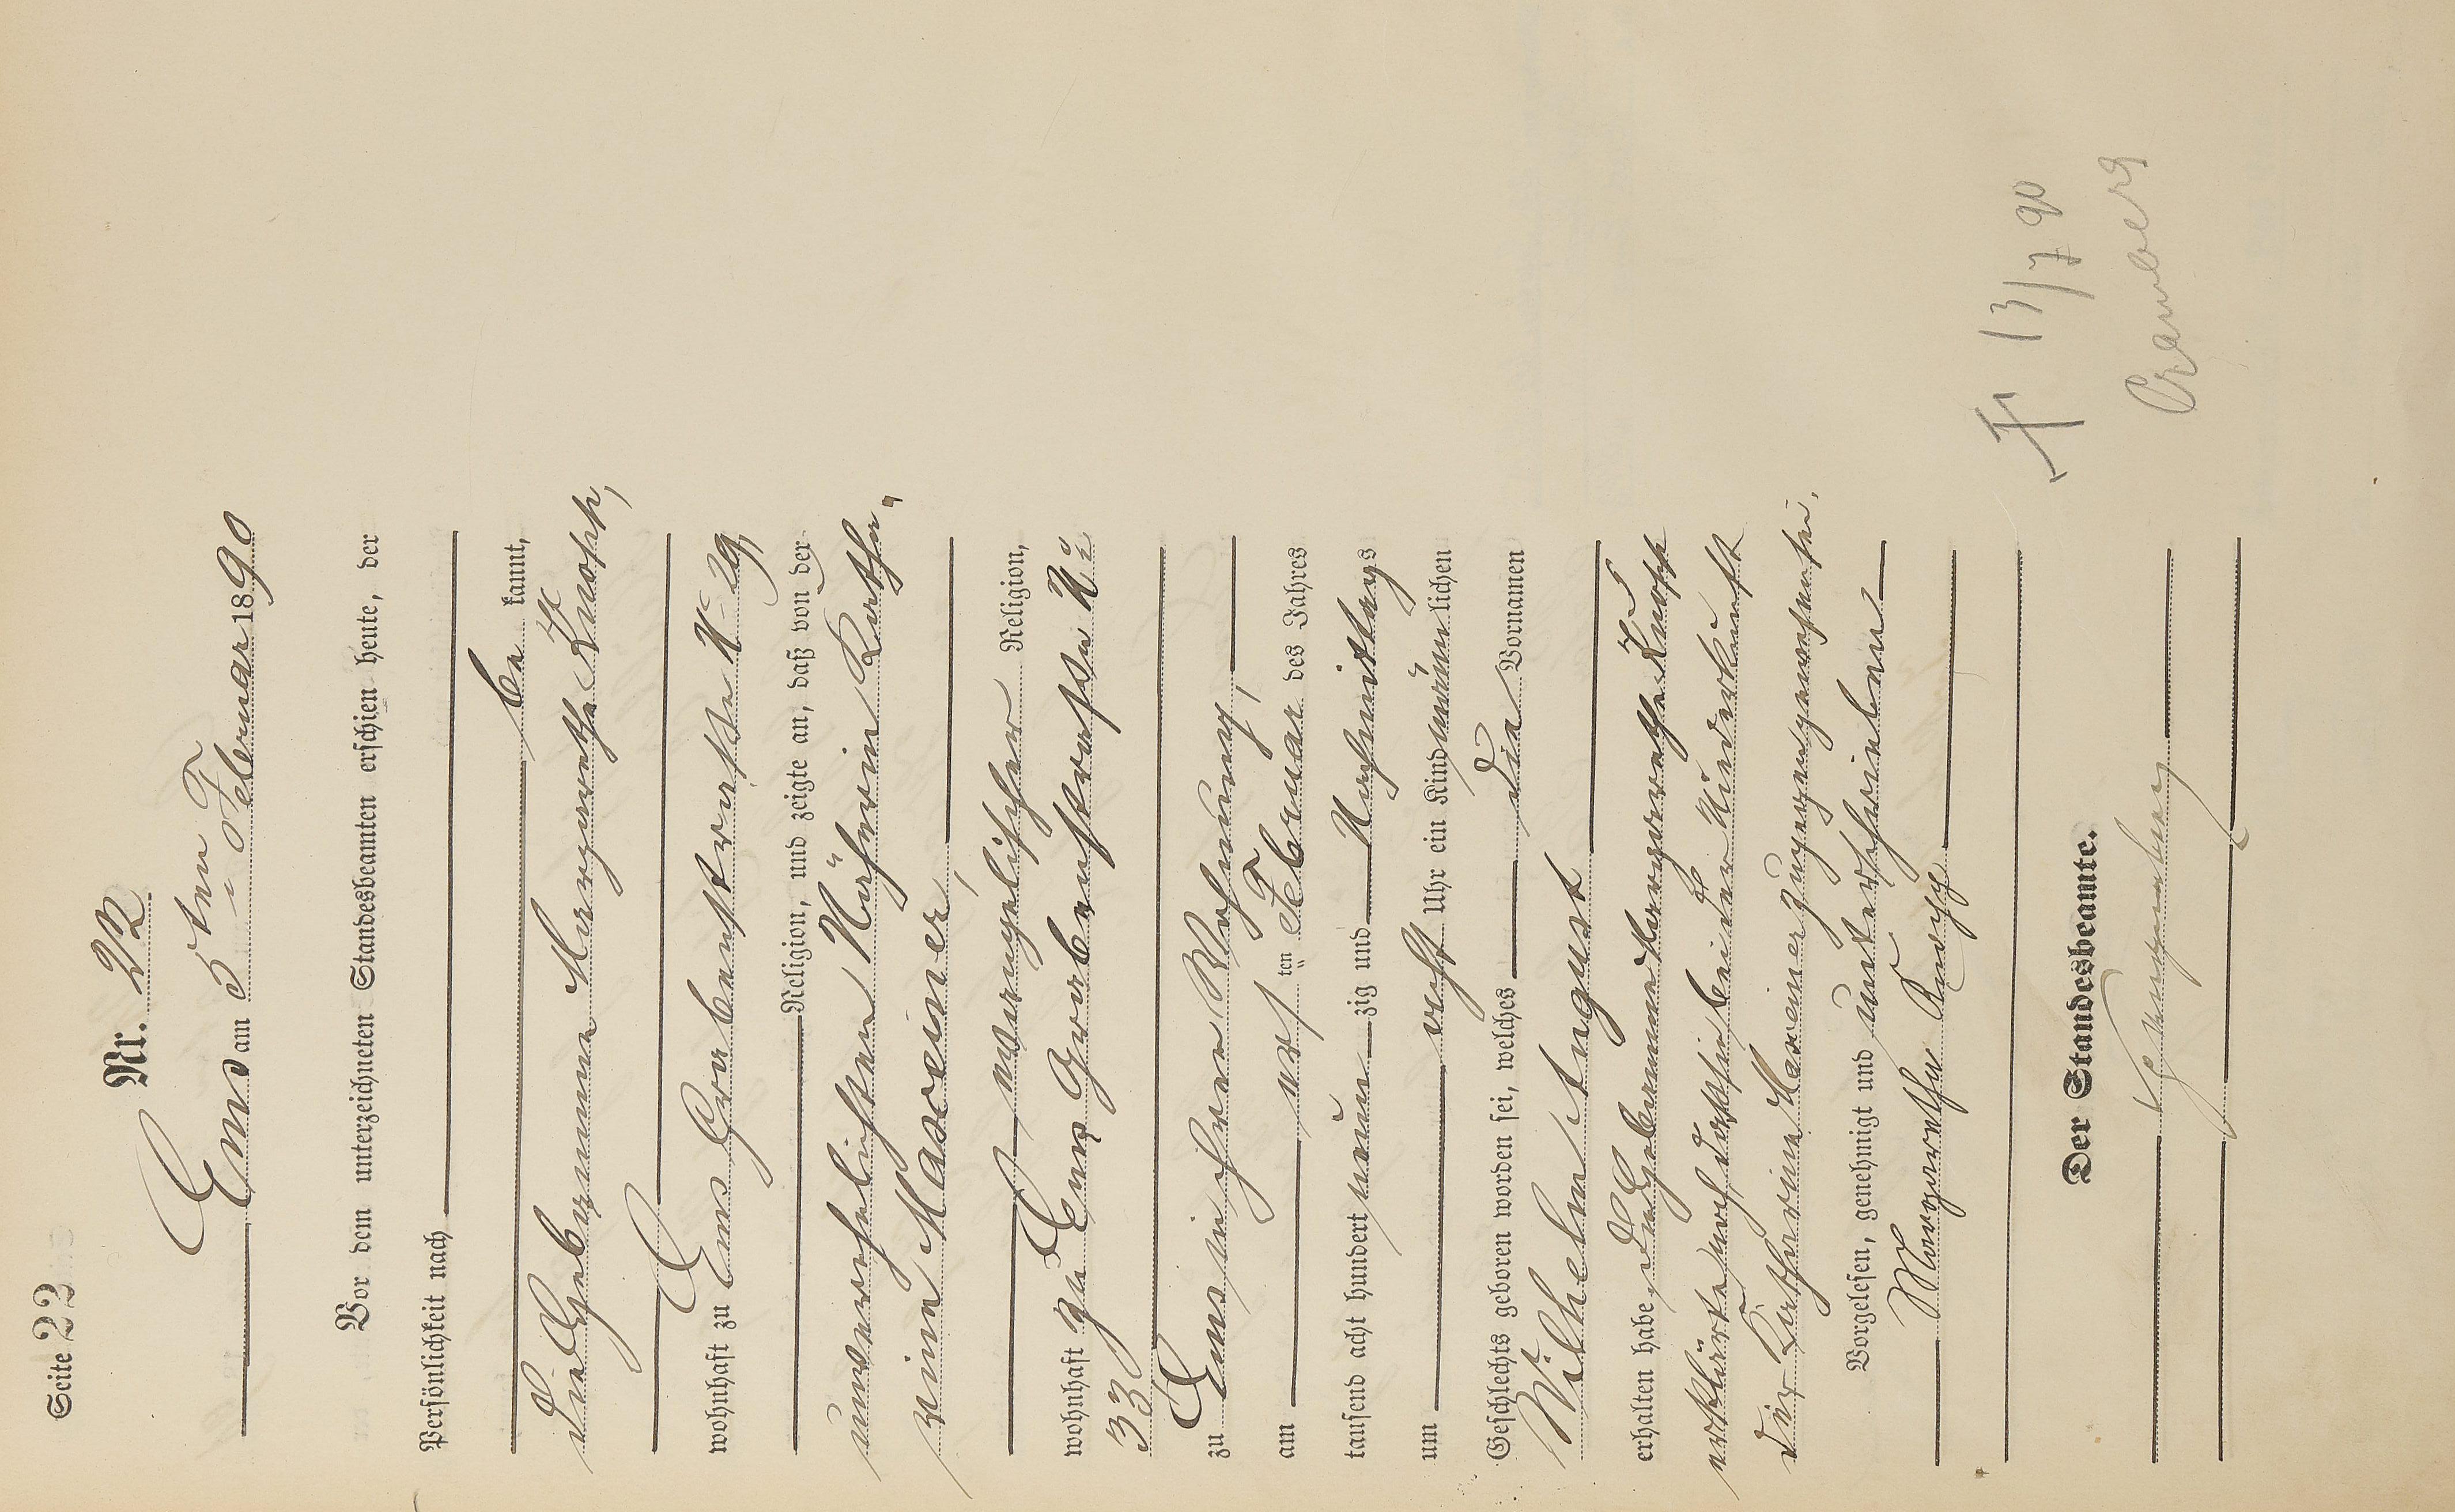 Seite 22
Nr. 22
Ems am 5ten Februar 1890
Vor dem unterzeichneten Standesbeamten erschien heute, der
Persönlichkeit nach
be kannt,
die Hebamme Margarethe Knopp,
wohnhaft zu Ems Grabenstrasse No 29,
Religion, und zeigte an, daß von der
unverehelichten Näherin Katha-
rine Maxeiner,
evangelischer Religion,
wohnhaft zu Ems Grabenstrasse No
33
zu Ems in ihrer Wohnung,
am ersten Februar des Jahres
tausend acht hundert neun zig und Nachmittags
um acht Uhr ein Kind männlichen
Geschlechts geboren worden sei, welches die Vornamen
Wilhelm August
erhalten habe. Die Hebamme Margarethe Knopp
erklärte, daß sie bei der Niederkunft
der Katharine Maxeiner zugegen gewesen sei.
Vorgelesen, genehmigt und unterschrieben
Margarethe Knopp
Der Standesbeamte.
† 13/7 90
Cramberg